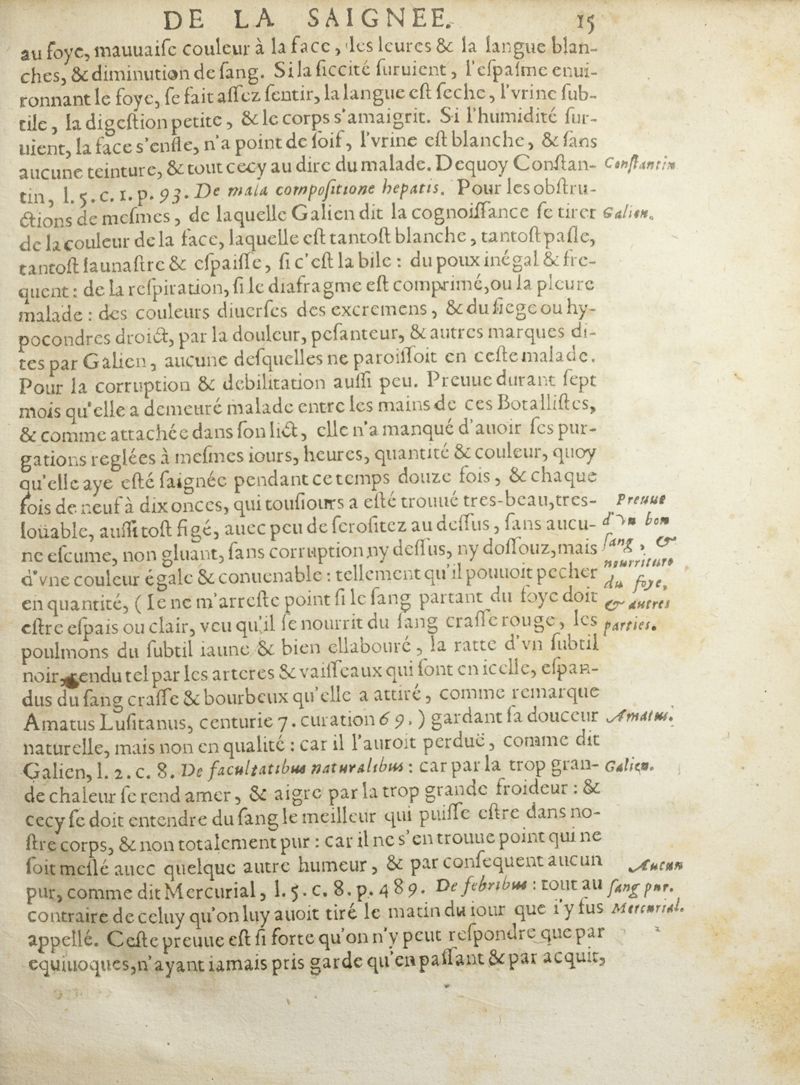 DE LA SAIGNEE. 15
au foye, mauuaiſe couleur à la face, les leures & la langue blan-
ches, & diminution de ſang. Si la ſiccité ſuruient, l'eſpaſme enui-
ronnant le foye, ſe fait aſſez ſentir, la langue eſt ſeche, l'vrine ſub-
tile, la digeſtion petite, & le corps s'amaigrit. Si l'humidité ſur-
uient, la face s'enfle, n'a point de ſoif, l'vrine eſt blanche, & ſans
aucune teinture, & tout cecy au dire du malade. Dequoy Conſtan- Conſtantin
tin, l. 5. c. 1. p. 93. De mala compoſitione hepatis. Pour les obſtru-
ctions de meſmes, de laquelle Galien dit la cognoiſſance ſe tirer Galien.
de la couleur de la face, laquelle eſt tantoſt blanche, tantoſt paſle,
tantoſt iaunaſtre & eſpaiſſe, ſi c'eſt la bile : du poux inégal & fre-
quent : de la reſpiration, ſi le diafragme eſt comprimé, ou la pleure
malade : des couleurs diuerſes des excremens, & du ſiege ou hy-
pocondres droict, par la douleur, peſanteur, & autres marques di-
tes par Galien, aucune deſquelles ne paroiſſoit en ceſte malade.
Pour la corruption & debilitation auſſi peu. Preuue durant ſept
mois qu'elle a demeuré malade entre les mains de ces Botalliſtes,
& comme attachée dans ſon lict, elle n'a manqué d'auoir ſes pur-
gations reglées à meſmes iours, heures, quantité & couleur, quoy
qu'elle aye eſté ſaignée pendant ce temps douze fois, & chaque
fois de neuf à dix onces, qui touſiours a eſté trouué tres-beau, tres- Preuue
loüable, auſſi toſt figé, auec peu de ſeroſitez au deſſus, ſans aucu- d'vn bon
ne eſcume, non gluant, ſans corruption ny deſſus, ny doſſouz, mais ſang, &
d'vne couleur égale & conuenable : tellement qu'il pouuoit pecher nourriture du foye,
en quantité, ( Ie ne m'arreſte point ſi le ſang partant du foye doit & autres
eſtre eſpais ou clair, veu qu'il ſe nourrit du ſang craſſe rouge, les parties.
poulmons du ſubtil iaune & bien ellabouré, la ratte d'vn ſubtil
noir, rendu tel par les arteres & vaiſſeaux qui ſont en icelle, eſpan-
dus du ſang craſſe & bourbeux qu'elle a attiré, comme remarque
Amatus Luſitanus, centurie 7. curation 69. ) gardant ſa douceur Amatus.
naturelle, mais non en qualité : car il l'auroit perduë, comme dit
Galien, l. 2. c. 8. De facultatibus naturalibus : car par la trop gran- Galien.
de chaleur ſe rend amer, & aigre par la trop grande froideur : &
cecy ſe doit entendre du ſang le meilleur qui puiſſe eſtre dans no-
ſtre corps, & non totalement pur : car il ne s'en trouue point qui ne
ſoit meſlé auec quelque autre humeur, & par conſequent aucun Aucun
pur, comme dit Mercurial, l. 5. c. 8. p. 489. De febribus : tout au ſang pur.
contraire de celuy qu'on luy auoit tiré le matin du iour que i'y fus Mercurial.
appellé. Ceſte preuue eſt ſi forte qu'on n'y peut reſpondre que par
equiuoques, n'ayant iamais pris garde qu'en paſſant & par acquit,